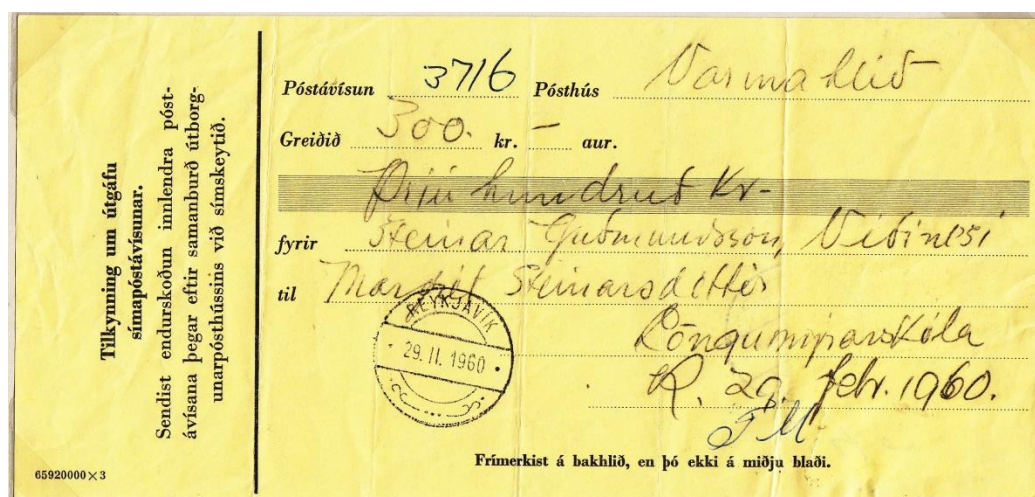 Tilkynning um útgáfu
símapóstávísunar.
Sendist endurskoðun innlendra póst-
ávísana þegar eftir samanburð útborg-
unarpósthússins við símskeytið.
65920000×3
Póstávísun 3716 Pósthús Varmahlíð
Greiðið 300. kr. – aur.
Þrjú hundruð Kr-
fyrir Steinar Guðmundsson, Víðinesi
til Margrét Steinarsdóttir
REYKJAVÍK
29. II. 1960
Löngumýrarskóla
R. 29. febr. 1960.
Frímerkist á bakhlið, en þó ekki á miðju blaði.